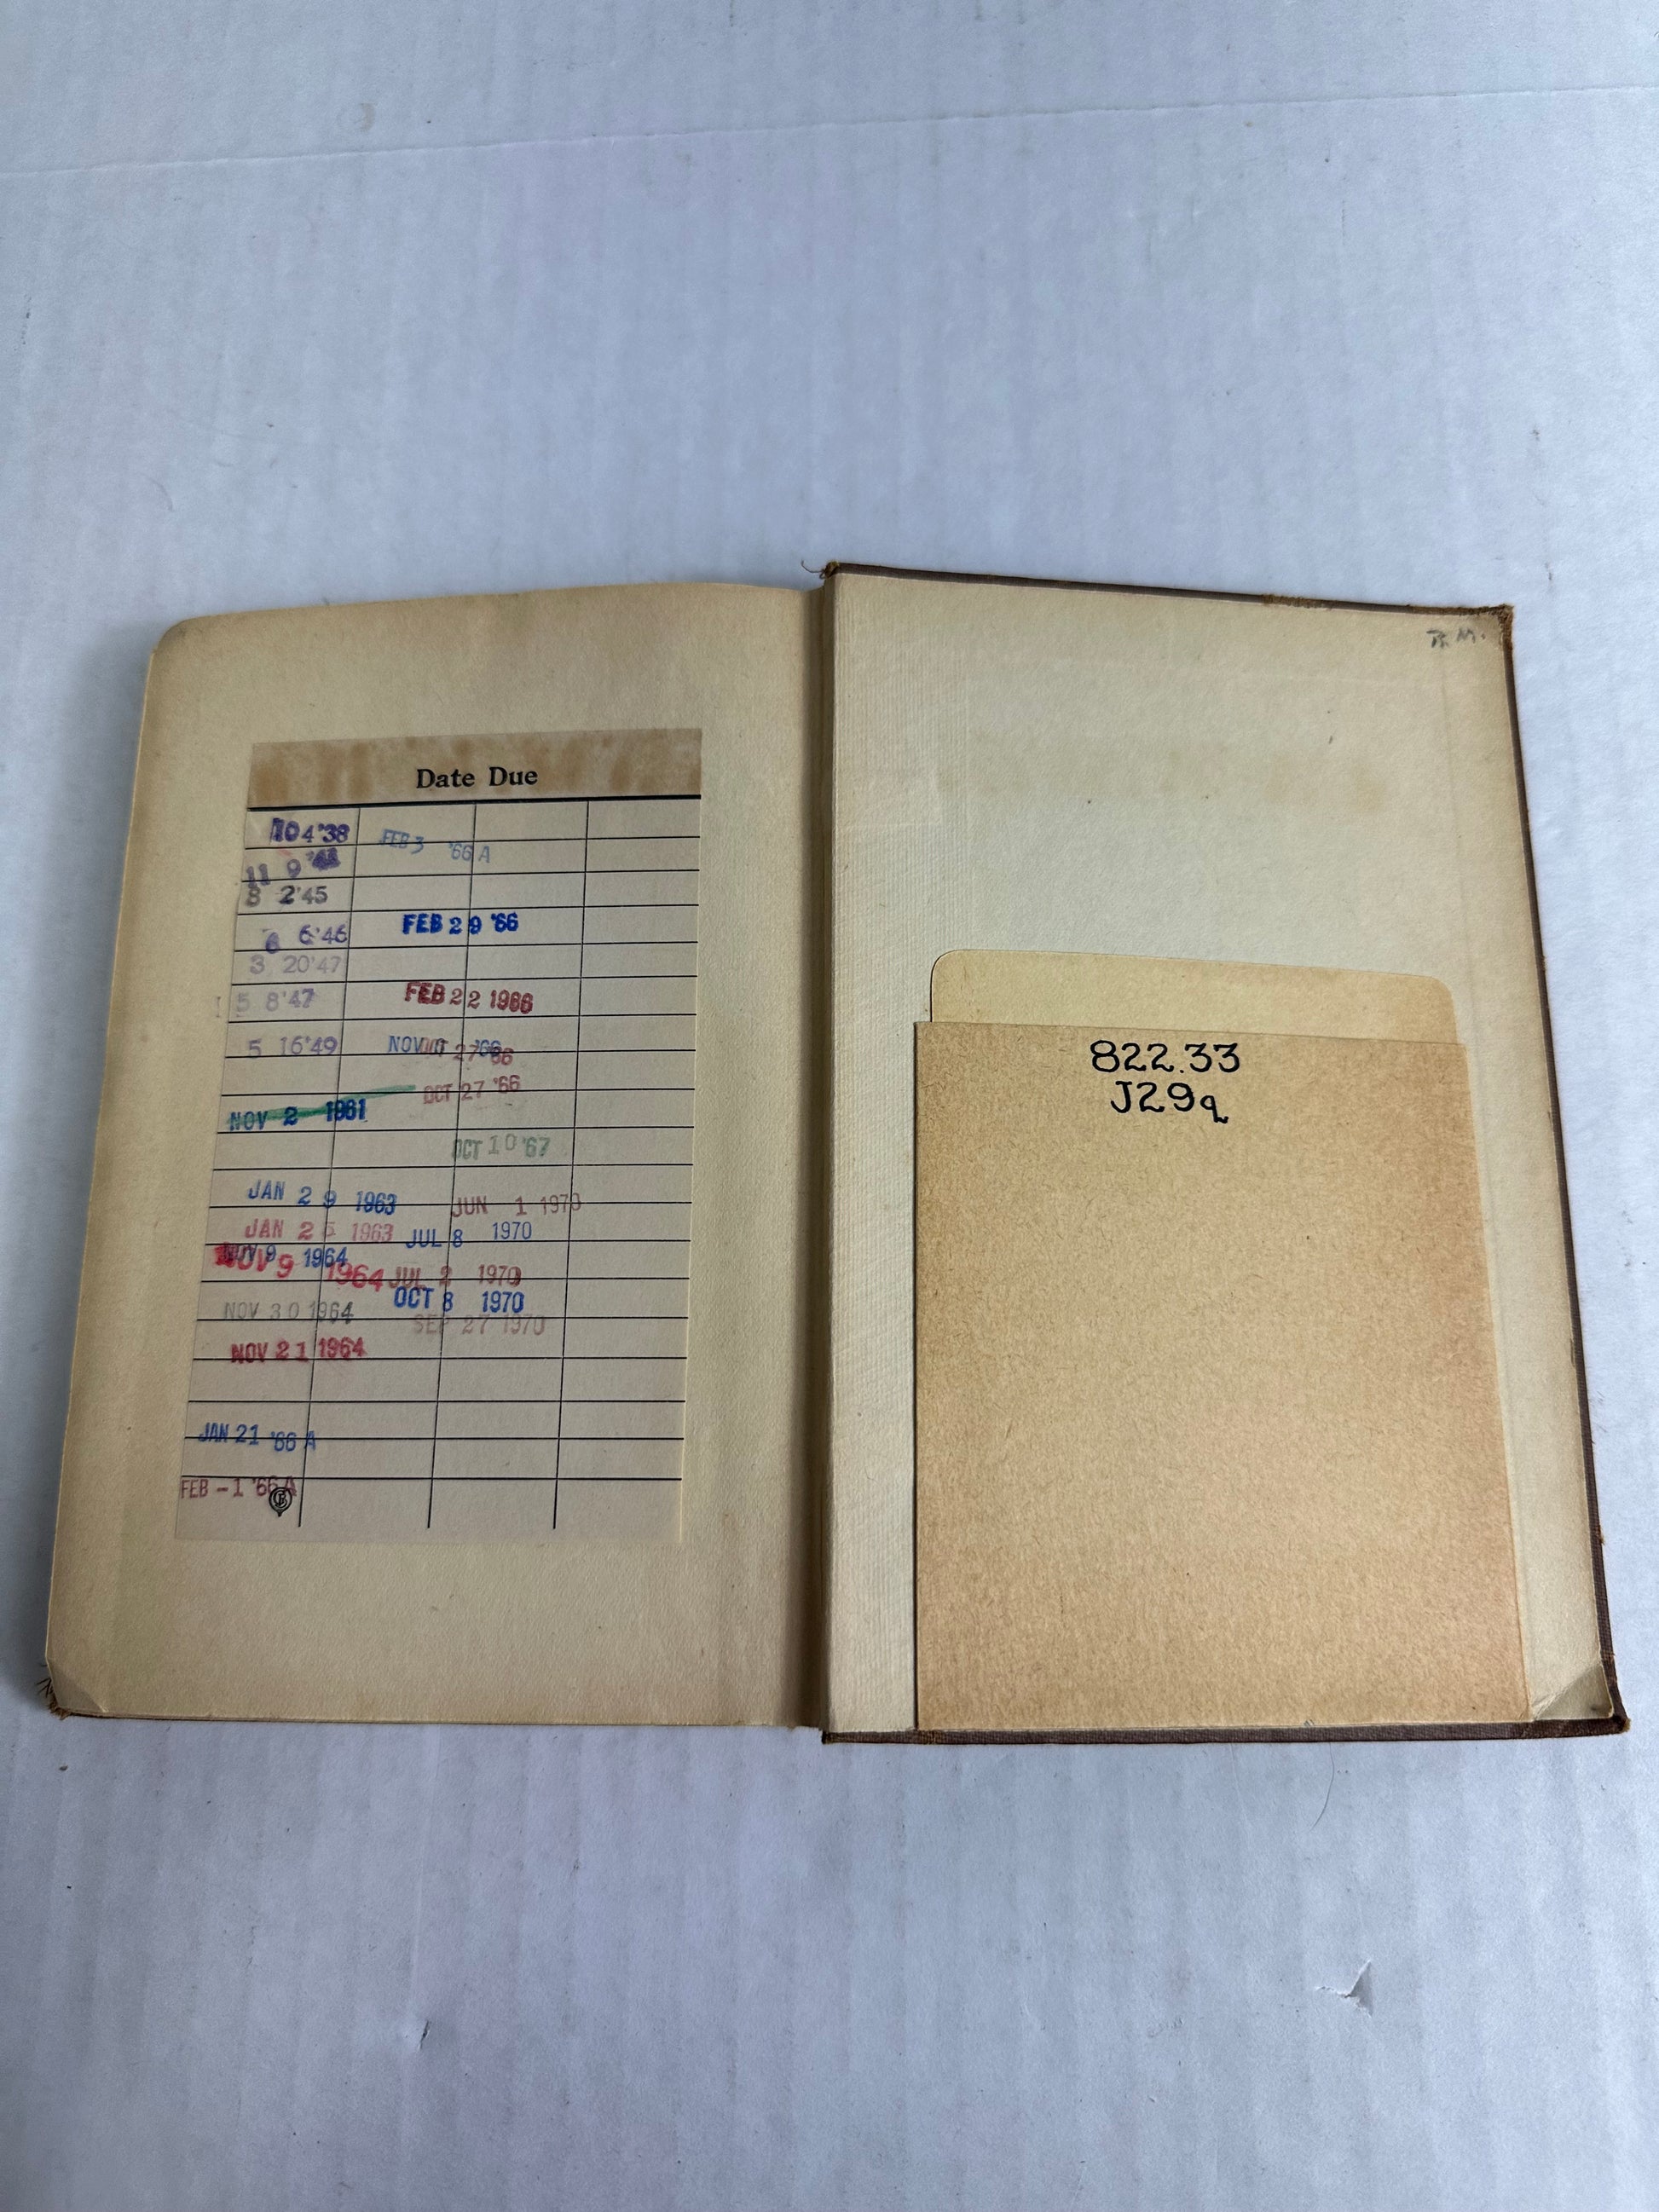 Date Due
10 4 '38
11 9
8 2 '45
6 6 '46
3 20 '47
5 8 '47
5 16 '49
NOV 2 1961
JAN 29 1963
JAN 25 1963
NOV 9 1964
NOV 9 1964
NOV 30 1964
NOV 21 1964
JAN 21 '66 A
FEB -1 '66 A
FEB 3 '66 A
FEB 29 '66
FEB 22 1966
NOV '66
27 '66
OCT 27 '66
OCT 10 '67
JUN 1 1970
JUL 8 1970
JUL 2 1970
OCT 8 1970
SEP 27 1970
R. M.
822.33
J29q